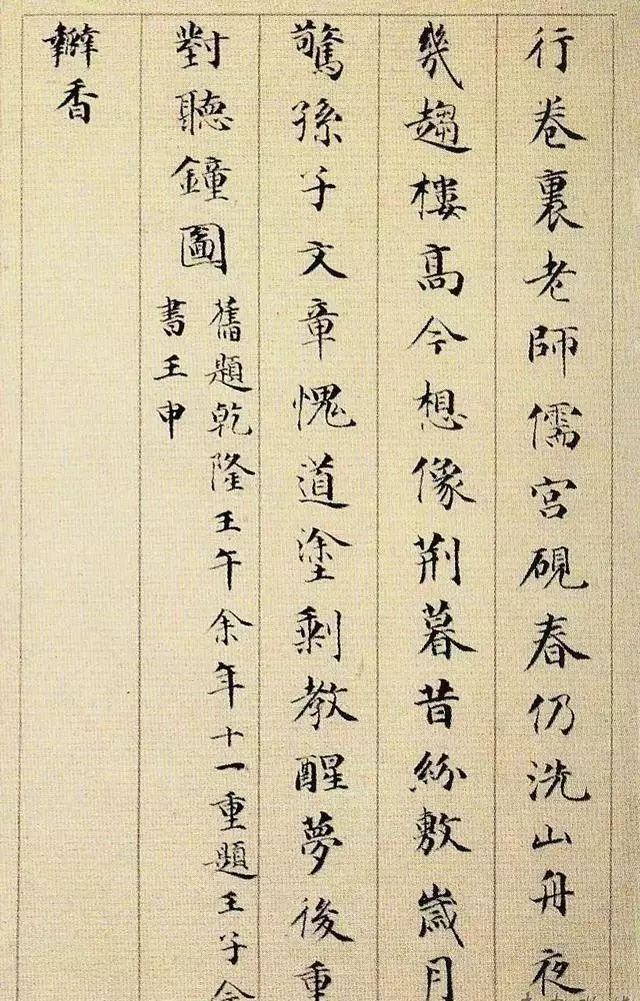 行卷裏老師儒宮硯春仍洗山舟夜
幾趨樓高今想像荆暮昔紛敷歲月
驚孫子文章愧道塗剩教醒夢後重
對聽鐘圖
舊題乾隆壬午余年十一重題壬子余
書壬申
瓣香